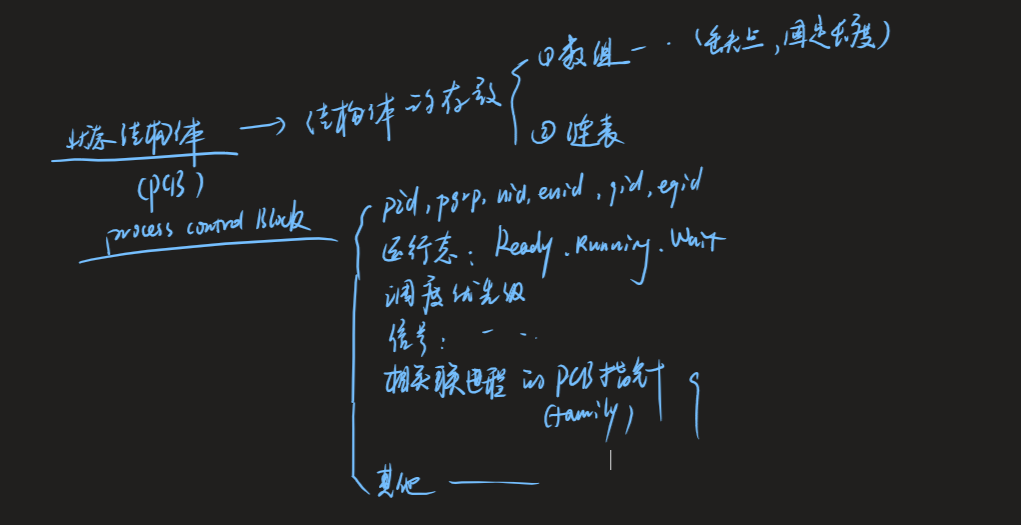 ①数组 — ·· (毛头上,固定长度)
状态结构体 → 结构体的存放
②链表
(PCB)
process control Block
pid, pgrp, uid, euid, gid, egid
运行态: Ready. Running. Wait
调度优先级
信号: — ··
相关联进程的PCB指针
(family)
其他 ——